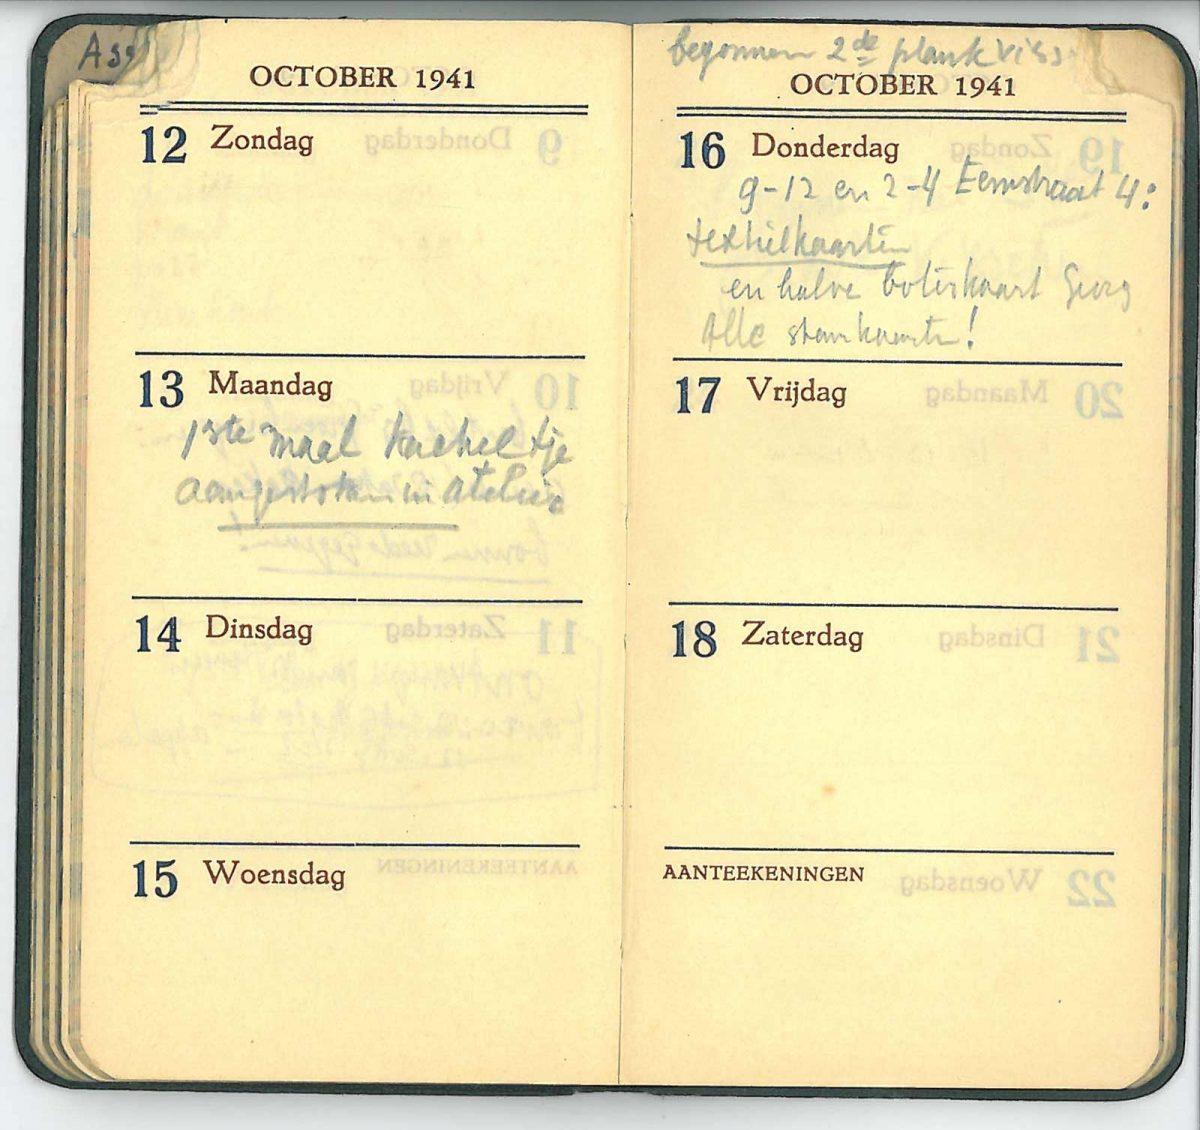 OCTOBER 1941
12 Zondag
13 Maandag
1ste maal kacheltje
aangestoken in atelier
14 Dinsdag
15 Woensdag
begonnen 2de plank
OCTOBER 1941
16 Donderdag
9-12 en 2-4 Eemstraat 4:
textielkaarten
en halve boterkaart Georg
Alle stamkaarten!
17 Vrijdag
18 Zaterdag
AANTEEKENINGEN